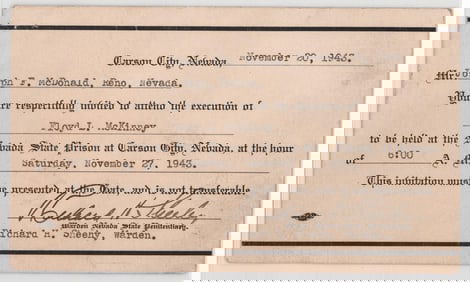 Carson City, Nevada November 20, 1943.
Joseph F. McDonald, Reno, Nevada.
You are respectfully invited to attend the execution of
Floyd L. McKinney
to be held at the
Nevada State Prison at Carson City, Nevada, at the hour
of 6:00 A. M.
Saturday, November 27, 1943.
This invitation must
be presented at the Gate, and is not transferable.
Richard H. Sheehy
Warden Nevada State Penitentiary.
Richard H. Sheehy, Warden.